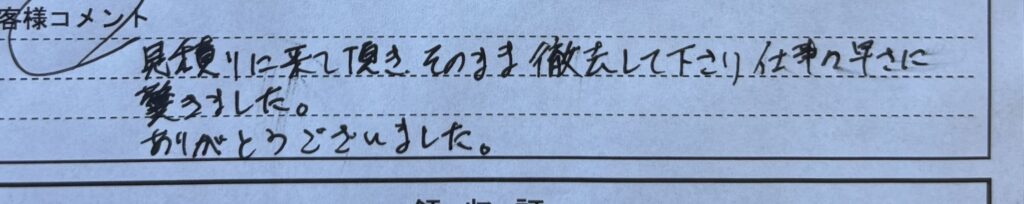 客様コメント
見積りに来て頂き そのまま 徹去して下さり 仕事の早さに
驚きました。
ありがとうございました。
領 収 証